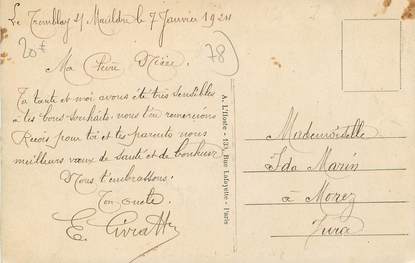 Le Tremblay s/ Mauldre le 7 Janvier 1924
20€
78
Ma Chère Nièce.
Ta tante et moi avons été très sensibles
à tes bons souhaits, nous t'en remercions
Reçois pour toi et tes parents nos
meilleurs vœux de santé et de bonheur
Nous t'embrassons.
Ton oncle.
E.
A. L'Hoste - 133, Rue Lafayette - Paris
Mademoiselle
Ida Marin
à Morez
Jura